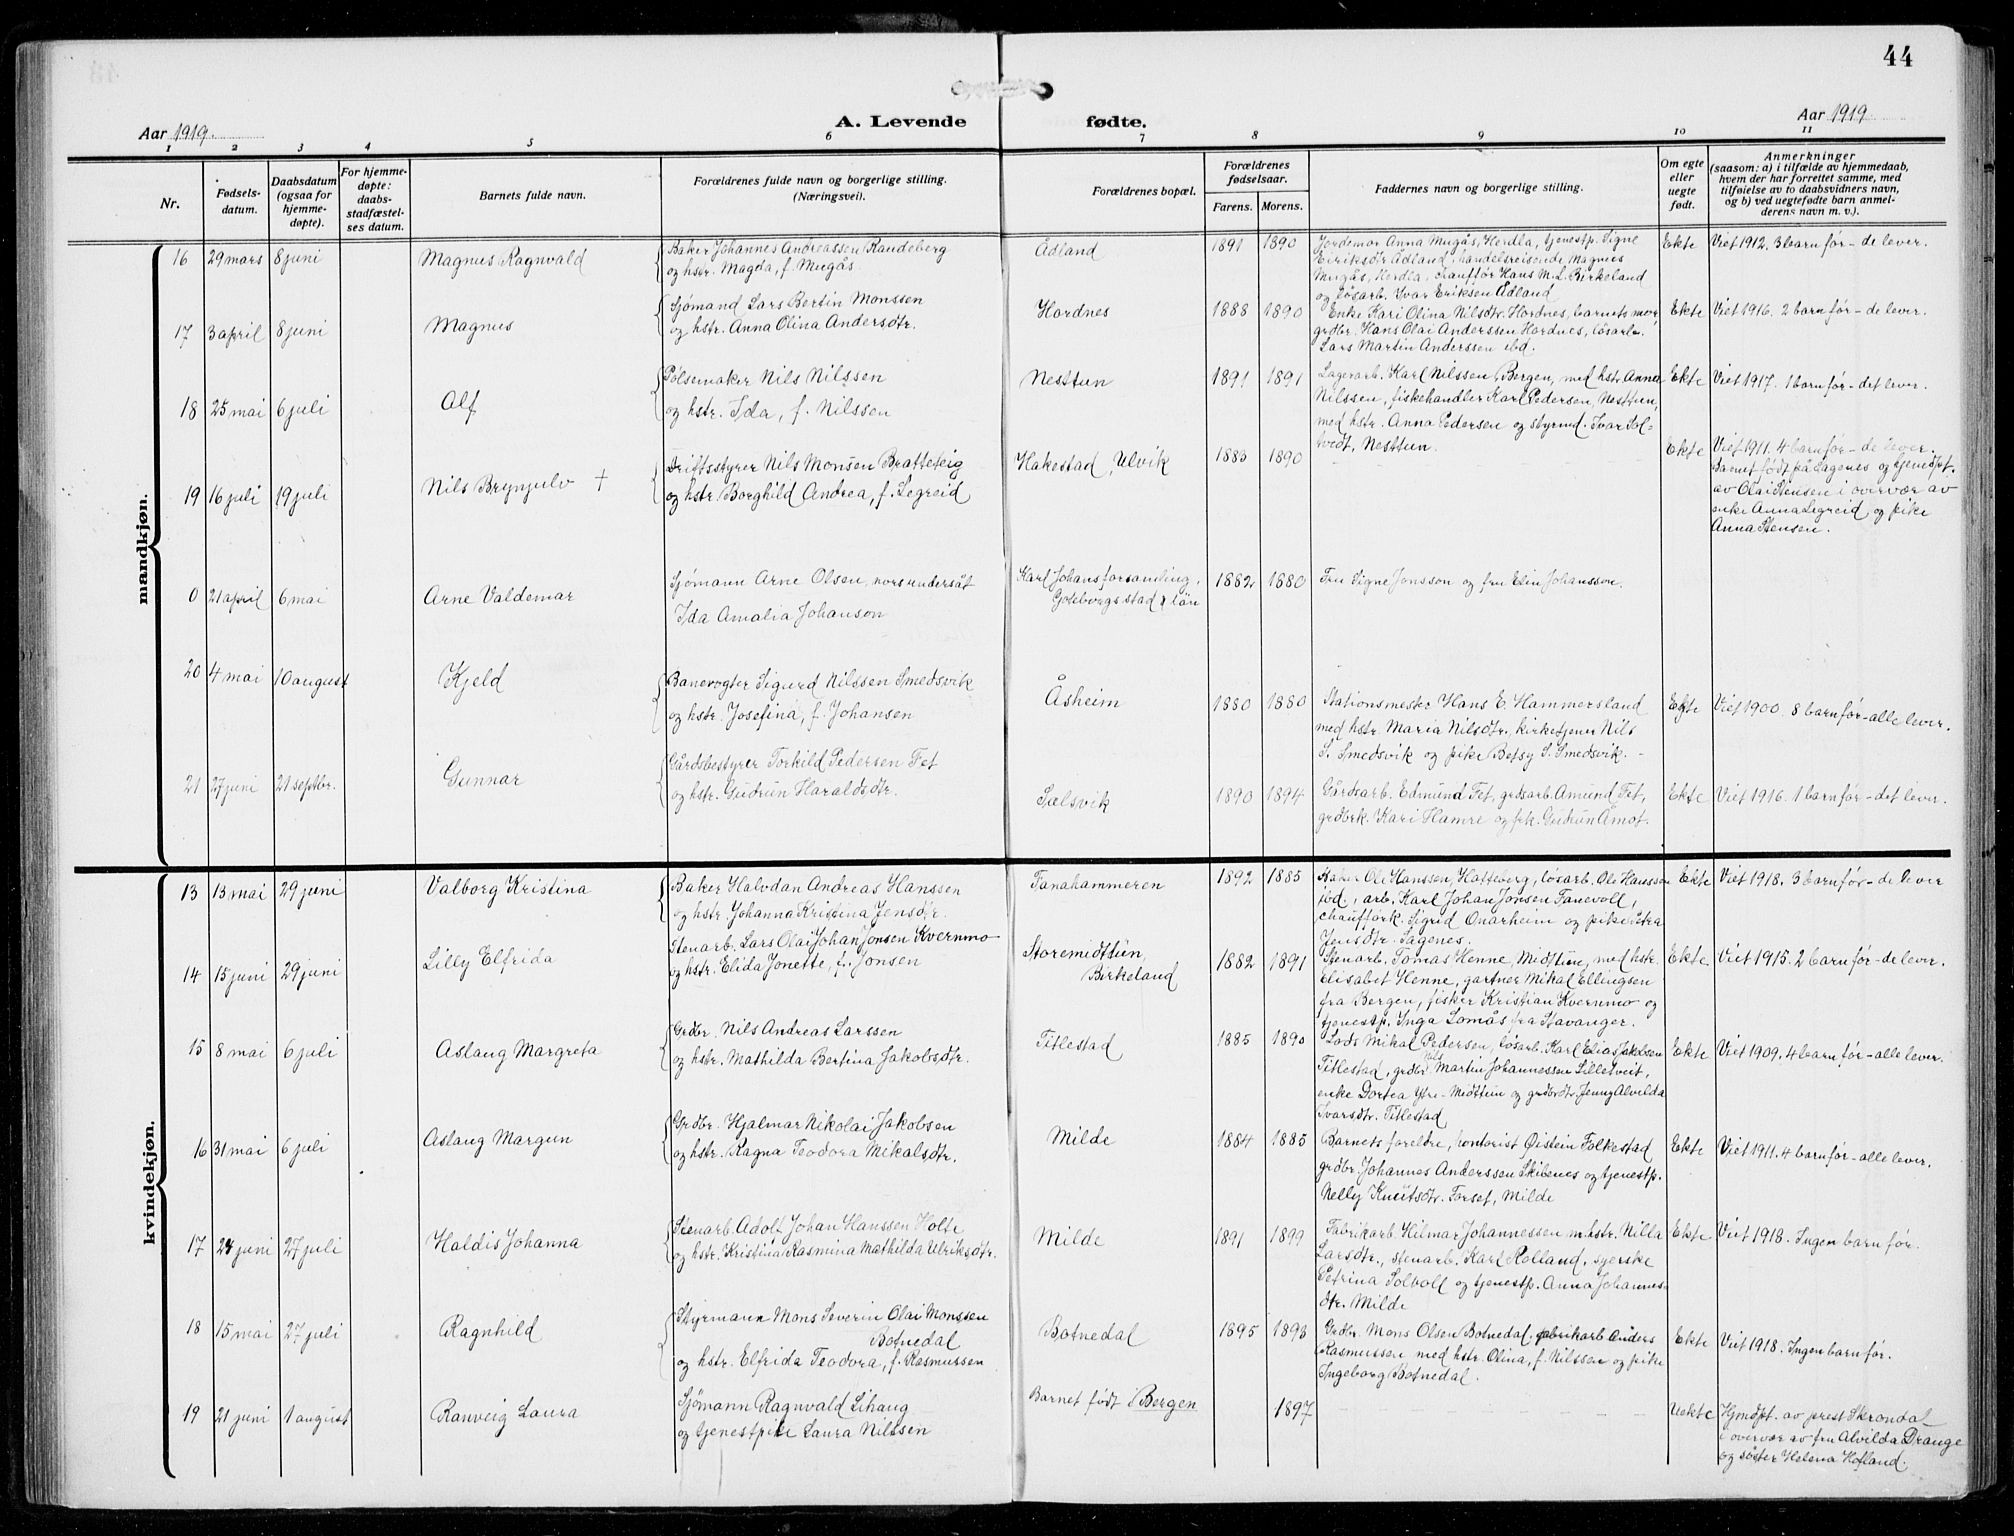 44
Aar 1919.
A. Levende
fødte.
Aar 1919
1 2 3 4 5 6 7 8 9 10 11
Nr.
Fødsels-
datum.
Daabsdatum
(ogsaa for
hjemme-
døpte).
For hjemme-
døpte:
daabs-
stadfæstel-
ses datum.
Barnets fulde navn.
Forældrenes fulde navn og borgerlige stilling.
(Næringsvei).
Forældrenes bopæl.
Forældrenes
fødselsaar.
Farens. Morens.
Faddernes navn og borgerlige stilling.
Om egte
eller
uegte
født.
Anmerkninger
(saasom: a) i tilfælde av hjemmedaab,
hvem der har forrettet samme, med
tilføielse av to daabsvidners navn,
og b) ved uegtefødte barn anmel-
derens navn m. v.).
mandkjøn.
16 29 mars 8 juni Magnus Ragnvald
Baker Johannes Andreassen Randeberg
og hstr. Magda, f. Mugås
Ådland 1891 1890
Jordemor Anna Mugås, Herdla, tjenestp. Signe
Eiriksdtr Ådland, handelsreisende Magnus
Mugås, Herdla, chauffør Hans M. L. Birkeland
og løsarb. Ivar Eriksen Ådland
Ekte Viet 1912. 3 barn før - de lever.
17 3 april 8 juni Magnus
Sjømand Lars Bertin Monssen
og hstr. Anna Olina Andersdtr.
Hordnes 1888 1890
Enke Kari Olina Nilsdtr. Hordnes, barnets mor,
grdbr. Hans Olai Anderssen Hordnes, løsarb.
Lars Martin Anderssen ibd.
Ekte Viet 1916. 2 barn før - de lever.
18 25 mai 6 juli Alf
Pølsemaker Nils Nilssen
og hstr. Ida, f. Nilssen
Nesttun 1891 1891
Lagerarb. Karl Nilssen, Bergen, med hstr. Anna
Nilssen, fiskehandler Karl Pedersen, Nesttun,
med hstr. Anna Pedersen og styrmd. Ivar Sol-
tvedt, Nesttun.
Ekte Viet 1917. 1 barn før - det lever.
19 16 juli 19 juli Nils Brynjulv +
Driftsstyrer Nils Monsen Bratteteig
og hstr. Borghild Andrea, f. Legreid
Hakestad, Ulvik 1883 1890
Ekte Viet 1911. 4 barn før - de lever.
Barnet født på Lagenes og hjemedpt.
av Olai Stensen i overvær av
enke Anna Legreid og pike
Anna Stensen.
0 21 april 6 mai Arne Valdemar
Sjømann Arne Olsen, norsk undersåt
Ida Amalia Johanson
Karl Johans forsamling,
Gøteborgs stad & län
1882 1880
Fru Signe Jonsson og fru Elin Johansson.
20 4 mai 10 august Kjeld
Banevogter Sigurd Nilssen Smedsvik
og hstr. Josefina, f. Johansen
Åsheim 1880 1880
Stationsmester Hans E. Hammersland
med hstr. Maria Nilsdtr., kirketjener Nils
S. Smedsvik og pike Betsy S. Smedsvik. -
Egte Viet 1900. 8 barn før - alle lever.
21 27 juni 21 septbr. Gunnar
Gårdsbestyrer Torkild Pedersen Fet
og hstr. Gudrun Haraldsdtr.
Sælsvik 1890 1894
Gårdsarb. Edmund Fet, grdsarb. Amund Fet,
grdbrk. Kari Hamre og pk. Gudrun Åmot.
Ekte Viet 1916. 1 barn før - det lever.
kvindekjøn.
13 13 mai 29 juni Valborg Kristina
Baker Halvdan Andreas Hanssen
og hstr. Johanna Kristina Jensdtr.
Fanahammeren 1892 1885
Baker Ole Hanssen, Hatteberg, løsarb. Ole Hansson
ibd., arb. Karl Johan Jonsen Fanevoll,
chaufførk. Sigrid Onarheim og pike Petra
Jensdtr. Sagenes.
Ekte Viet 1918. 3 barn før - de lever
14 15 juni 29 juni Lilly Elfrida
Stenarb. Lars Olai Johan Jonsen Kvernmo
og hstr. Elida Jonette, f. Jonsen
Storemidttun,
Birkeland
1882 1891
Stenarb. Tomas Henne, Midttun, med hstr.
Elisabet Henne, gartner Mikal Ellingsen
fra Bergen, fisker Kristian Kvernmo og
tjenestp. Inga Lomås fra Stavanger.
Ekte Viet 1915. 2 barn før - de lever.
15 8 mai 6 juli Aslaug Margreta
Grdbr. Nils Andreas Larssen
og hstr. Mathilda Bertina Jakobsdtr.
Titlestad 1885 1890
Lods Mikal Pedersen, løsarb. Karl Elias Jakobsen
Titlestad, grdbr. Nils Martin Johannessen Lilletveit,
enke Dortea Ytre-Midttun og grdbrdtr. Jenny Alvilda
Ivarsdtr. Titlestad
Ekte Viet 1909. 4 barn før - alle lever.
16 31 mai 6 juli Aslaug Margun
Grdbr. Hjalmar Nikolai Jakobsen
og hstr. Ragna Teodora Mikalsdtr.
Milde 1884 1885
Barnets foreldre, kontorist Øistein Folkestad
grdbr. Johannes Anderssen Skibenes og tjenestp.
Nelly Knutsdtr. Forset, Milde
Ekte Viet 1911. 4 barn før - alle lever.
17 24 juni 27 juli Haldis Johanna
Stenarb. Adolf Johan Hanssen Holte
og hstr. Kristina Rasmina Mathilda Ulriksdtr.
Milde 1891 1899
Fabrikarb. Hilmar Johannessen m. hstr. Nilla
Larsdtr., stenarb. Karl Rolland, syerske
Petrina Solvoll og tjenestp. Anna Johannes-
dtr. Milde
Ekte Viet 1918. Ingen barn før.
18 15 mai 27 juli Ragnhild
Styrmann Mons Severin Olai Monssen
Botnedal
og hstr. Elfrida Teodora, f. Rasmussen
Botnedal 1895 1893
Grdbr. Mons Olsen Botnedal, fabrikarb Anders
Rasmussen med hstr. Olina, f. Nilssen og pike
Ingeborg Botnedal.
Ekte Viet 1918. Ingen barn før.
19 21 juni 1 august Ranveig Laura
Sjømann Ragnvald Lihaug
og tjenestpike Laura Nilssen
Barnet født i Bergen 1897
Uekte Hjmdpt. av prest Skrondal
i overvær av fru Alvilda Drange
og søster Helena Hofland.